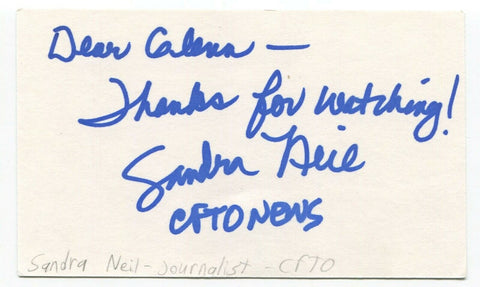 Dear Calann —
Thanks for watching!
Sandra Neil
CFTO NEWS
Sandra Neil - Journalist - CFTO